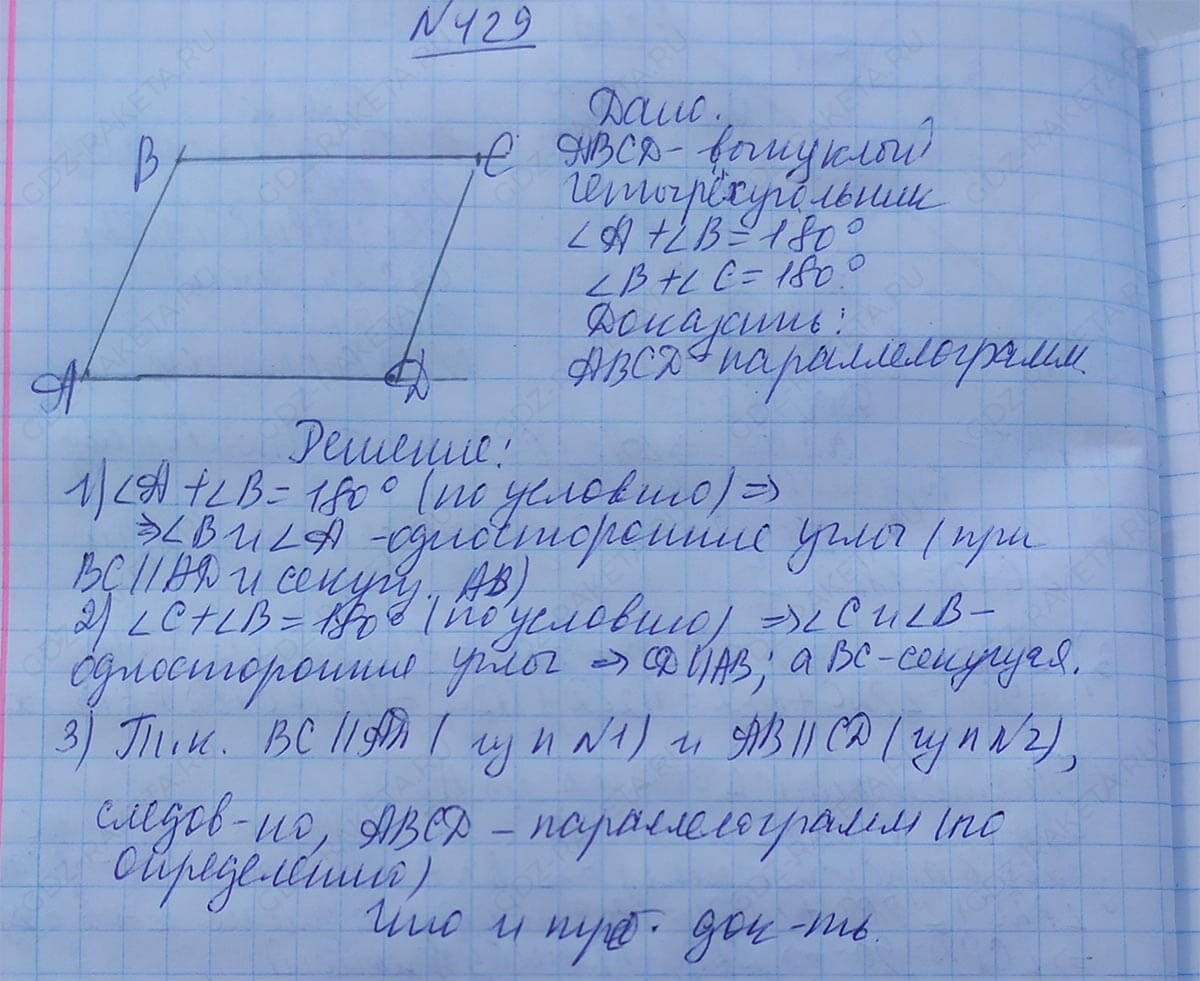 №429
Дано.
ABCD - выпуклый
четырёхугольник
∠A + ∠B = 180°
∠B + ∠C = 180°
Доказать:
ABCD - параллелограмм
B
C
A
D
Решение:
1) ∠A + ∠B = 180° (по условию) ⇒
⇒ ∠B и ∠A - односторонние углы (при
BC || AD и секущ. AB)
2) ∠C + ∠B = 180° (по условию) ⇒ ∠C и ∠B -
односторонние углы ⇒ CD || AB; а BC - секущая.
3) Т.к. BC || AD ( из п №1) и AB || CD (из п №2),
следов-но, ABCD - параллелограмм (по
определению)
Что и треб. док-ть.
GDZ-RAKETA.RU